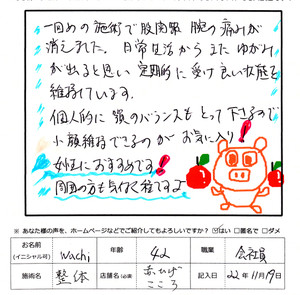 一回めの施術で股関節 腕の痛みが
消えました。日常生活からまたゆがみ
が出ると思い 定期的に受け良い状態を
維持ています。
個人的に顎のバランスもとって下さるので
小顔維持できるのがお気に入り!
女性におすすめです!
周囲の方も気付く程ですよ
※ あなた様の声を、ホームページなどでご紹介してもよろしいですか? ☑はい □匿名で □ダメ
お名前 (イニシャル可) Wachi 年齢 42 職業 会社員
施術名 整体 店舗名(必須) 赤ひげ こころ 記入日 22年11月19日